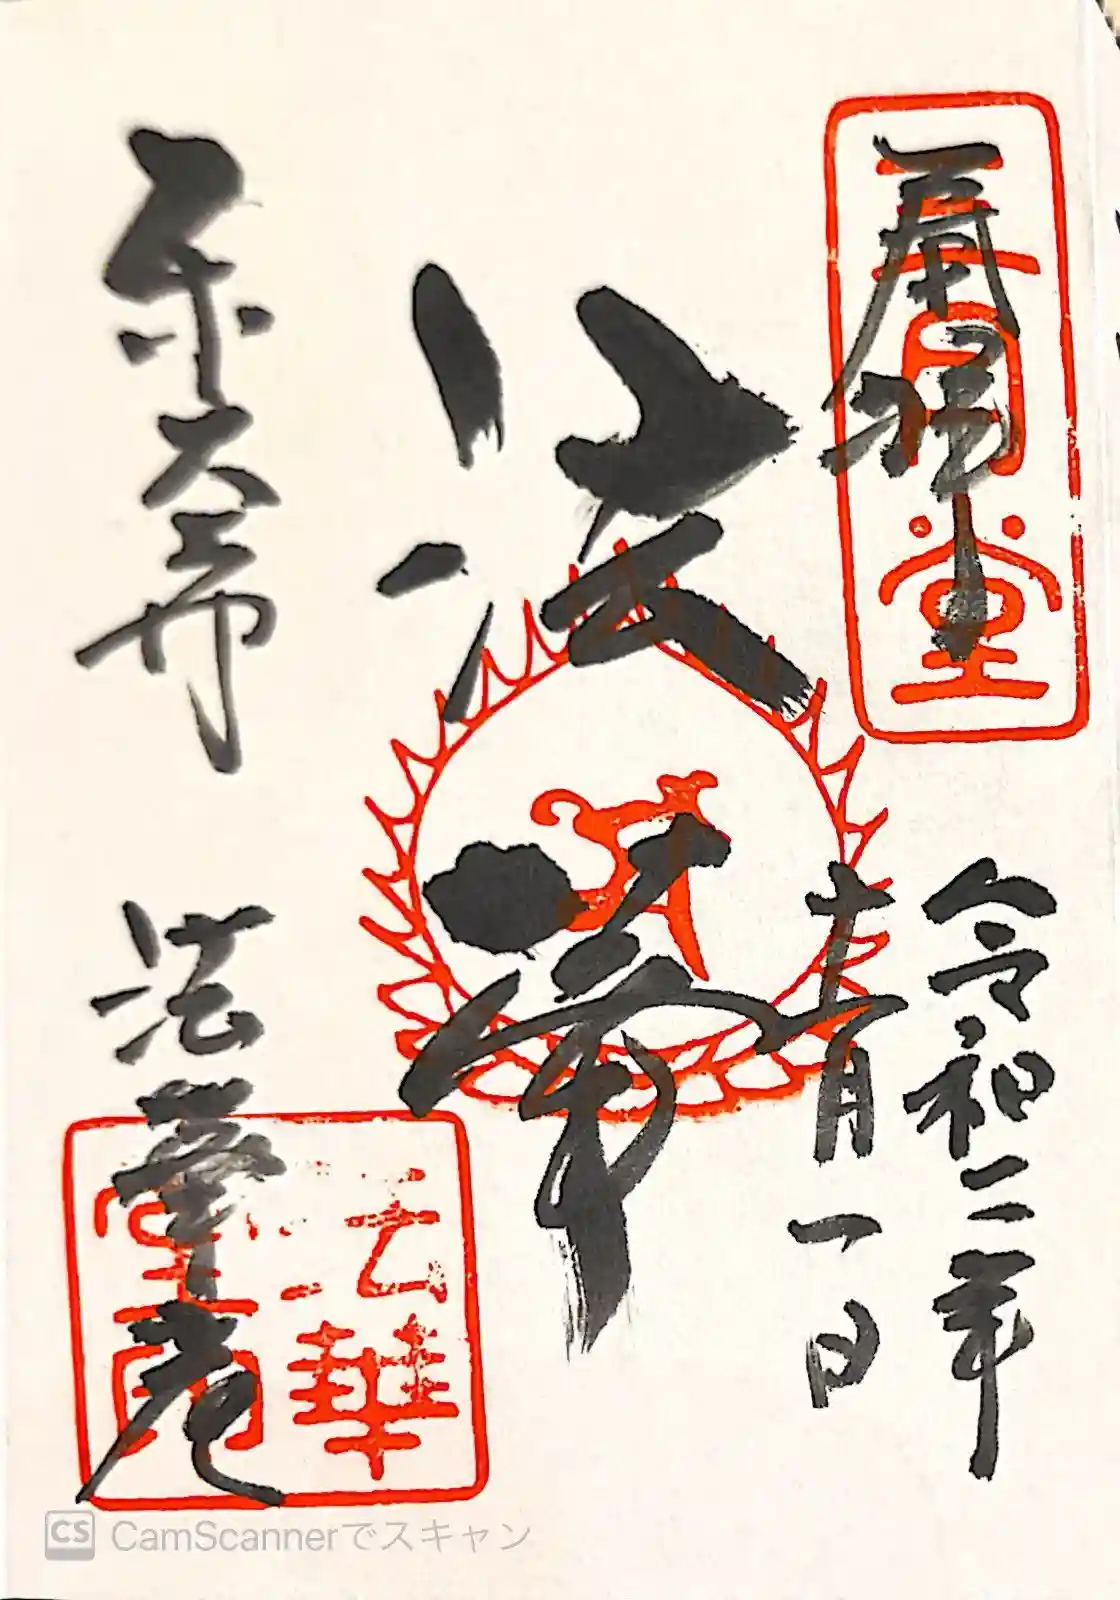 奉拝
三月堂
令和二年
十一月一日
法華
東大寺
法華堂
法華堂印
CamScannerでスキャン